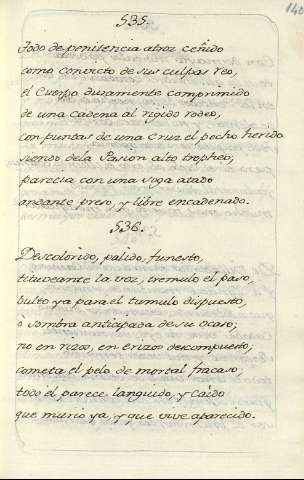 140
535.
Todo de penitencia atroz ceñido
como convicto de sus culpas reo,
el Cuerpo duramente comprimido
de una cadena al rigido rodeo,
con puntas de una Cruz el pecho herido
siendo dela Pasion alto tropheo,
parecia con una soga atado
andante preso, y libre encadenado.
536.
Descolorido, palido, funesto,
tituveante la voz, tremulo el paso,
bulto ya para el tumulo dispuesto,
ò sombra anticipada de su ocaso;
no en rizos, en erizos descompuesto,
cometa el pelo de mortal fracaso,
todo èl parece languido, y caìdo
que murio ya, y que vive aparecido.